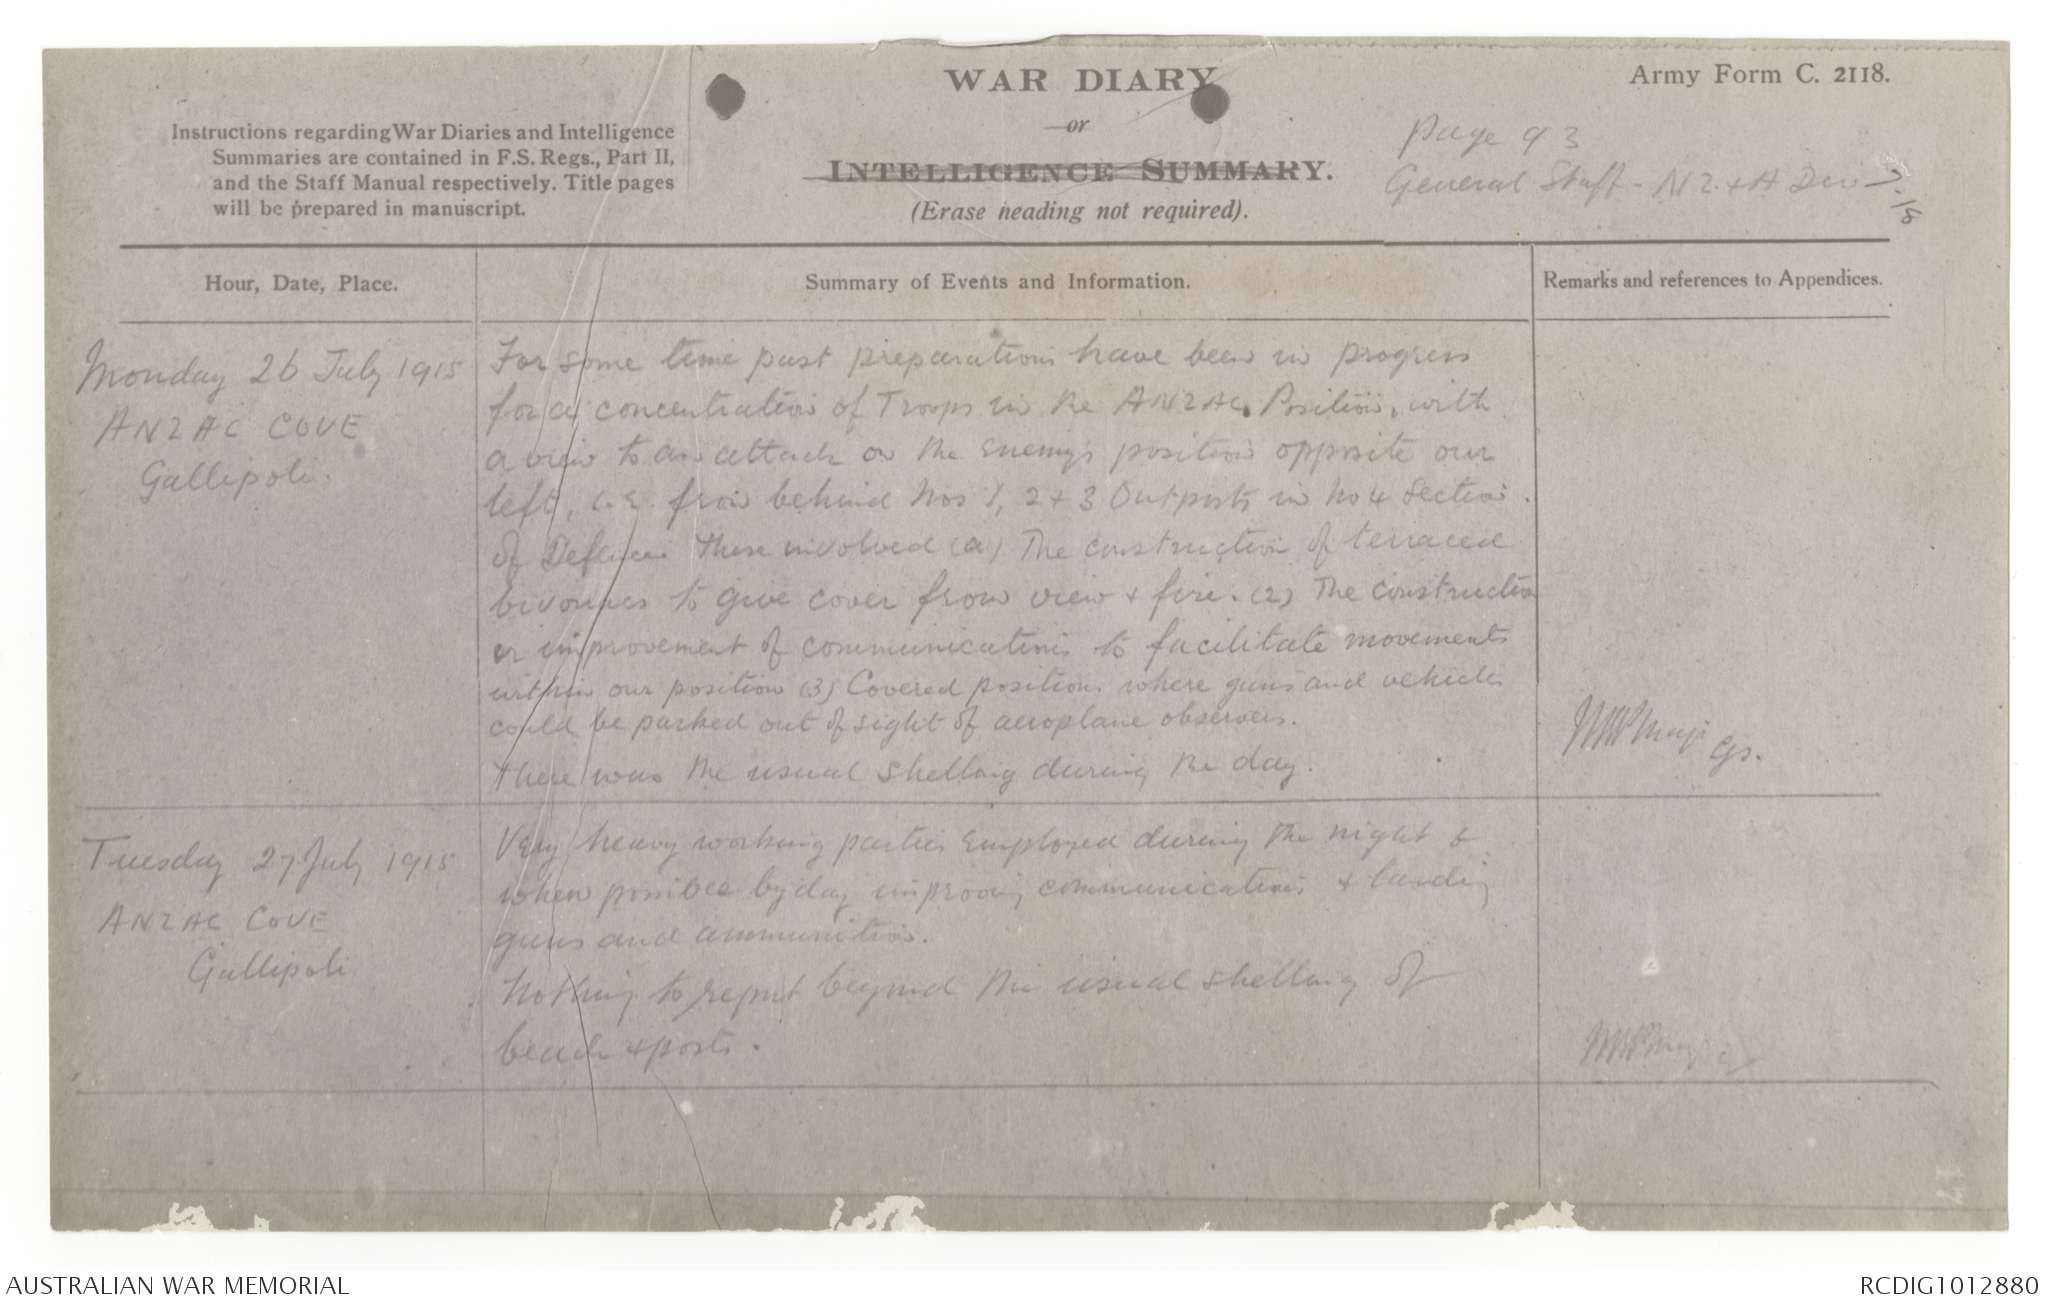 WAR DIARY
or
INTELLIGENCE SUMMARY.
(Erase heading not required).
Army Form C. 2118.
Instructions regarding War Diaries and Intelligence
Summaries are contained in F.S. Regs., Part II,
and the Staff Manual respectively. Title pages
will be prepared in manuscript.
Page 93
General Staff - NZ. & A Div
Hour, Date, Place.
Summary of Events and Information.
Remarks and references to Appendices.
Monday 26 July 1915
ANZAC COVE
Gallipoli.
For some time past preparations have been in progress
for a concentration of Troops in the ANZAC Position, with
a view to an attack on the Enemy's position opposite our
left, i.e. from behind Nos 1, 2 & 3 Outposts in No 4 Section
of Defence. These involved (a) The construction of terraced
bivouacs to give cover from view & fire. (2) The construction
or improvement of communications to facilitate movements
within our position (3) Covered positions where guns and vehicles
could be parked out of sight of aeroplane observers.
There was the usual shelling during the day.
GS.
Tuesday 27 July 1915
ANZAC COVE
Gallipoli
Very heavy working parties employed during the night &
when possible by day improving communications & landing
guns and ammunition.
Nothing to report beyond the usual shelling of
beach & posts.
AUSTRALIAN WAR MEMORIAL
RCDIG1012880